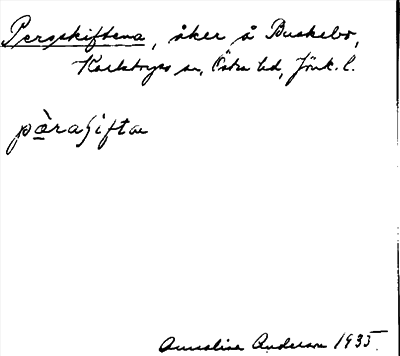 Persskiftena, åker å Buskebo,
Karlstorps sn, Östra hd, Jönk. l.
pàraʃifta
Annalisa Anderson 1935.